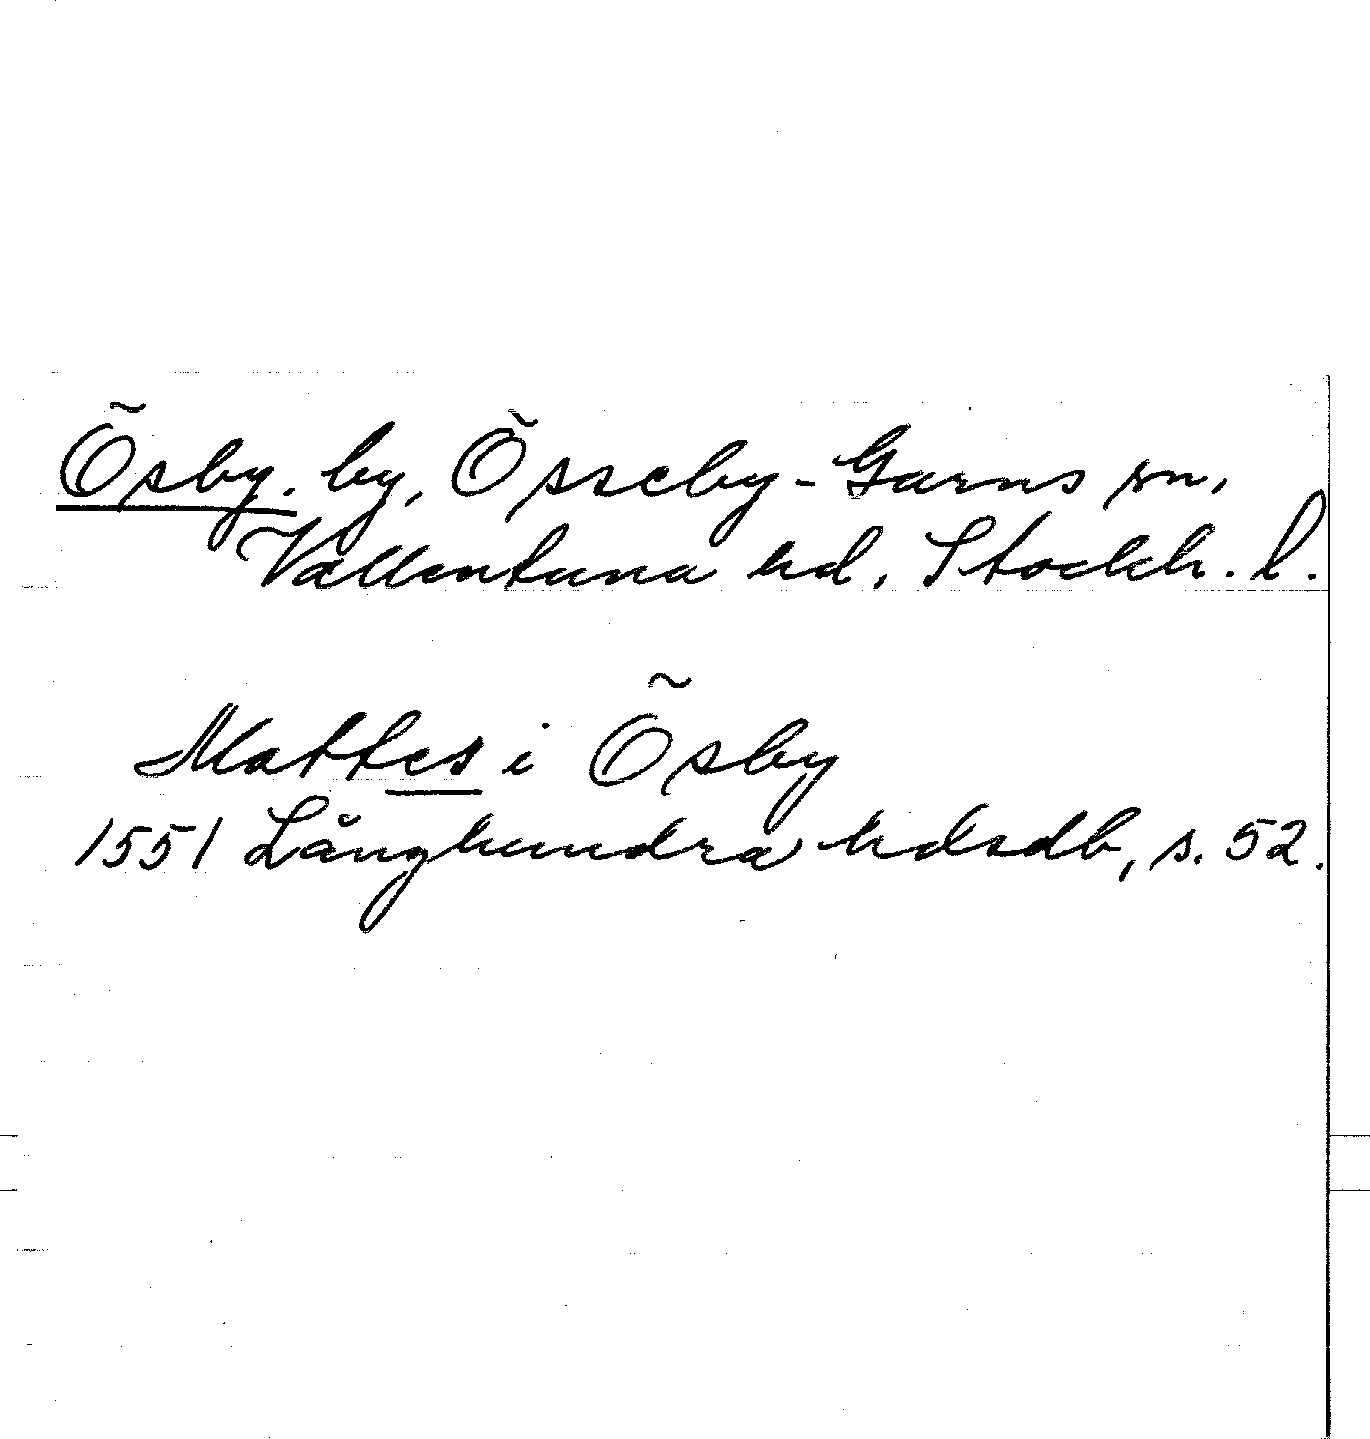 Õsby. by, Össeby-Garns sn,
Vallentuna hd, Stockh. l.
Mattes i Õsby
1551 Långhundra hdsdb, s. 52.